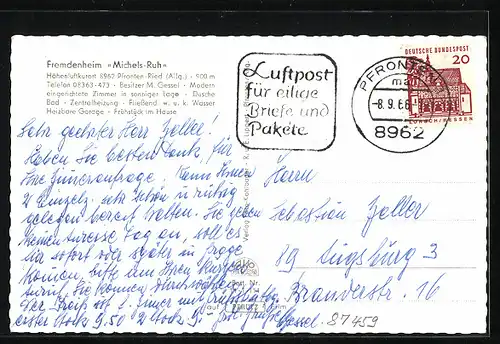 Fremdenheim »Michels-Ruh«
Höhenluftkurort 8962 Pfronten-Ried (Allg.) · 900 m
Telefon 08363-473 · Besitzer M. Gessel · Modern
eingerichtete Zimmer in sonniger Lage · Dusche
Bad · Zentralheizung · Fließend w. u. k. Wasser
Heizbare Garage · Frühstück im Hause
Luftpost
für eilige
Briefe und
Pakete
PFRONTEN
-8.9.66
8962
DEUTSCHE BUNDESPOST
20
LORSCH/HESSEN
Sehr geehrter Herr Zoller!
Haben Sie besten Dank für
Ihre Zimeranfrage. Kann Ihnen
2 Einzelz. sehr schön u. ruhig
gelegen bereit halten. Sie geben
keinen Tag an, soll es
sofort oder später in Frage
kommen, bitte um Ihren
zuruf. Sie können
Der Preis ist f. Zimer mit Frühstück
erster Stock 9.50 2 Stock 9.-
Gessel.
Herrn
Sebastian Zoller
89 Augsburg 3
Branderstr. 16
87459